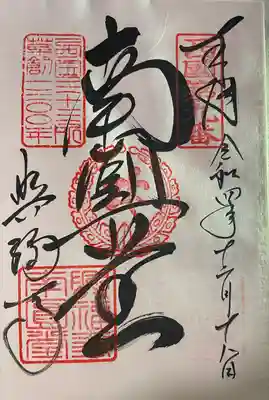 奉拝 令和四年十二月十八日
南圓堂
西国三十三所
草創一三〇〇年
興福寺